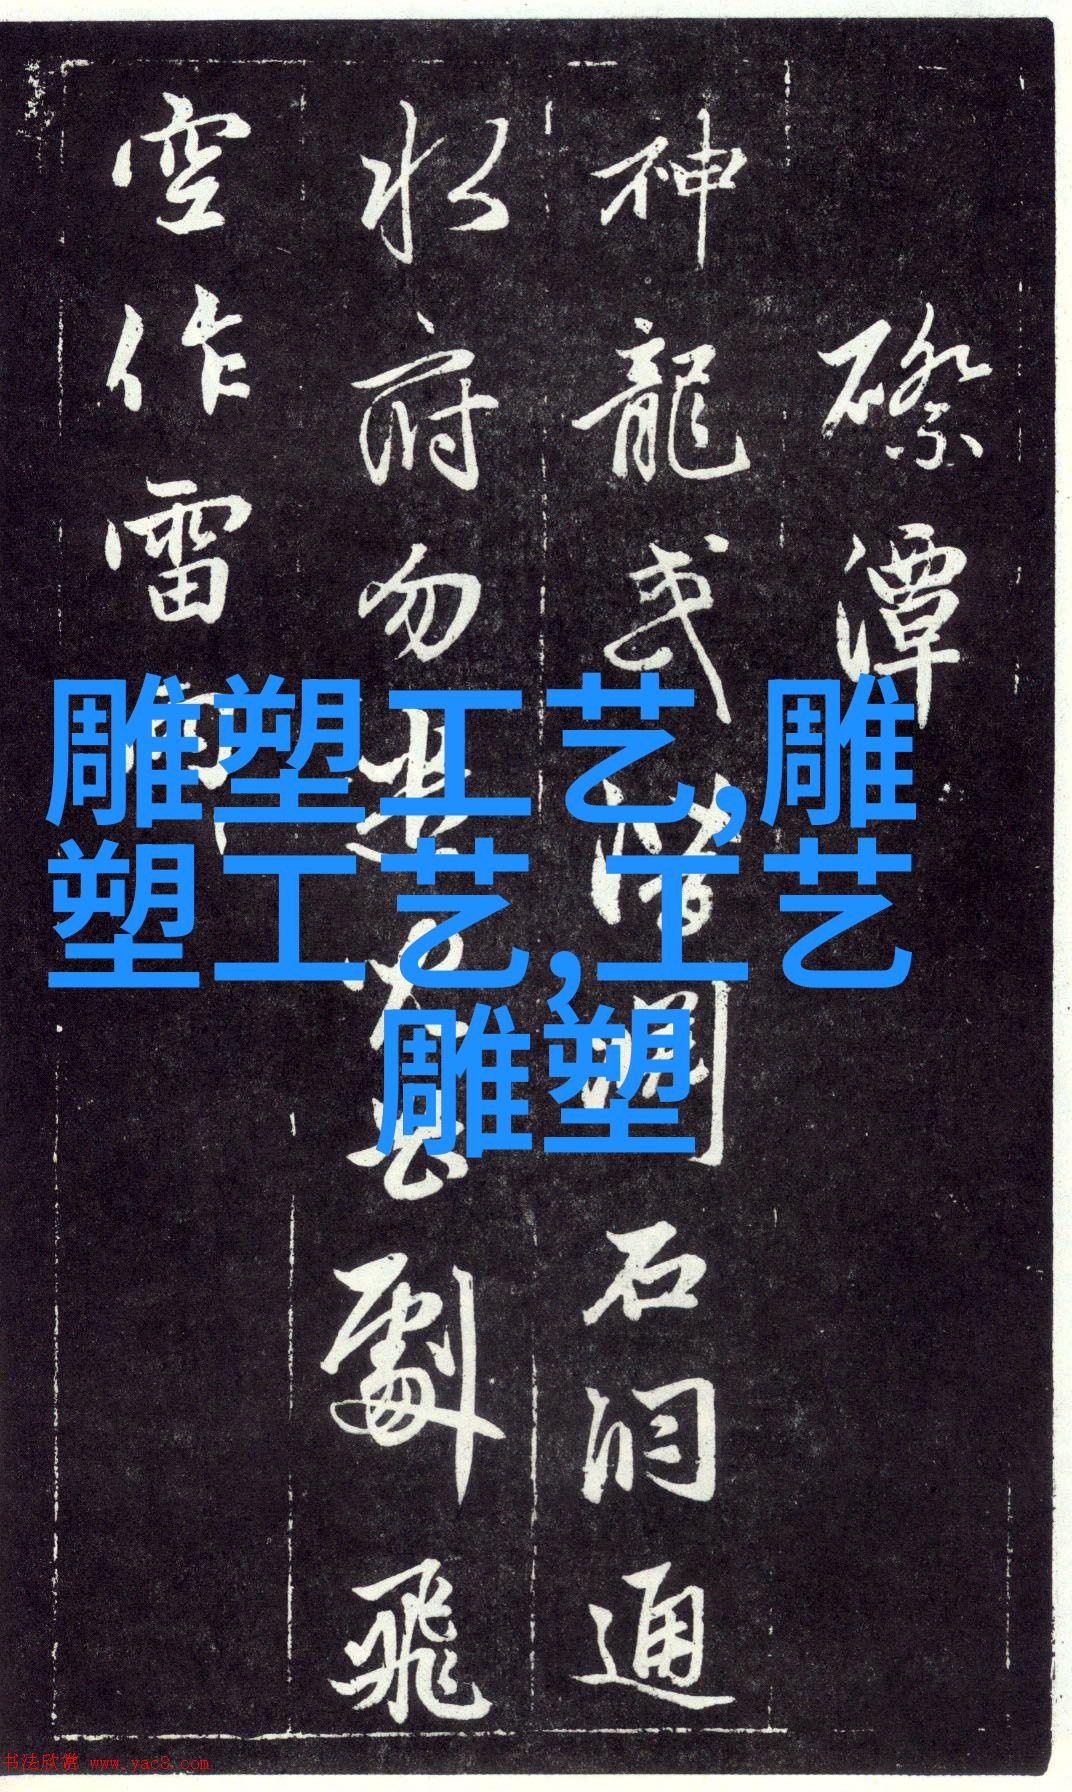 潭
神龍或潛石洞通
水府勿飛
空作雷雨
雕塑工艺,雕
塑工艺,工艺
雕塑
书法欣赏 www.yac8.com